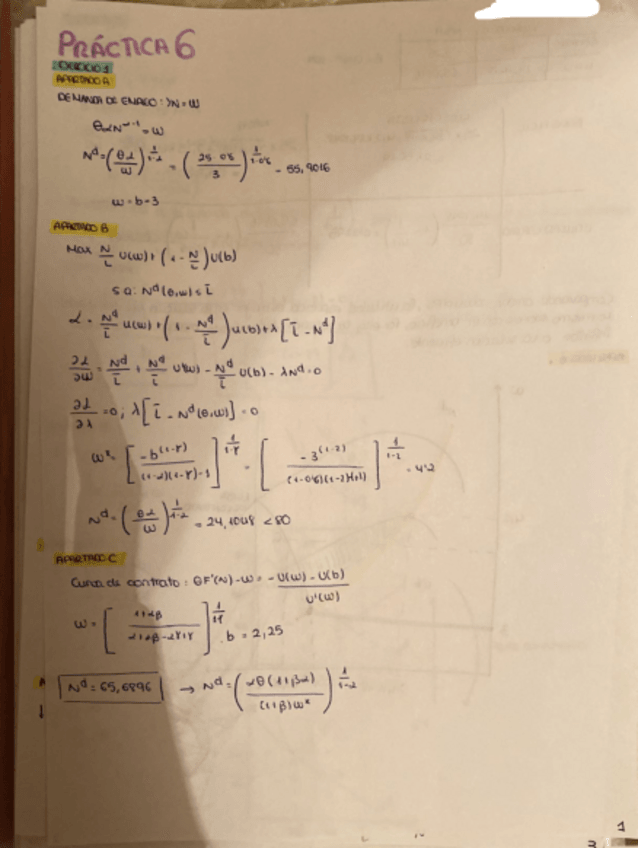 PRÁCTICA 6
EJERCICIO 1
APARTADO A
DEMANDA DE EMPLEO: YN = W
θαN^(α-1) = W
N^d = (θα/W)^(1/(1-α)) = (25·0'8/3)^(1/(1-0'8)) = 55,9016
W = b = 3
APARTADO B
Max N/L U(W) + (1 - N/L) U(b)
s.a: N^d(θ,W) ≤ L̄
L = N^d/L̄ U(W) + (1 - N^d/L̄) U(b) + λ[L̄ - N^d]
∂L/∂W = N^d/L̄ + N^d/L̄ U(W) - N^d/L̄ U(b) - λN^d = 0
∂L/∂λ = 0; λ[L̄ - N^d(θ,W)] = 0
= 4'2
N^d = (θα/W)^(1/(1-α)) = 24,1048 < 80
APARTADO C
Curva de contrato: θF'(N) - W = - (U(W) - U(b))/U'(W)
b = 2,25
N^d = 65,6896 → N^d = (αθ(1+βα)/((1+β)W*))^(1/(1-α))
1